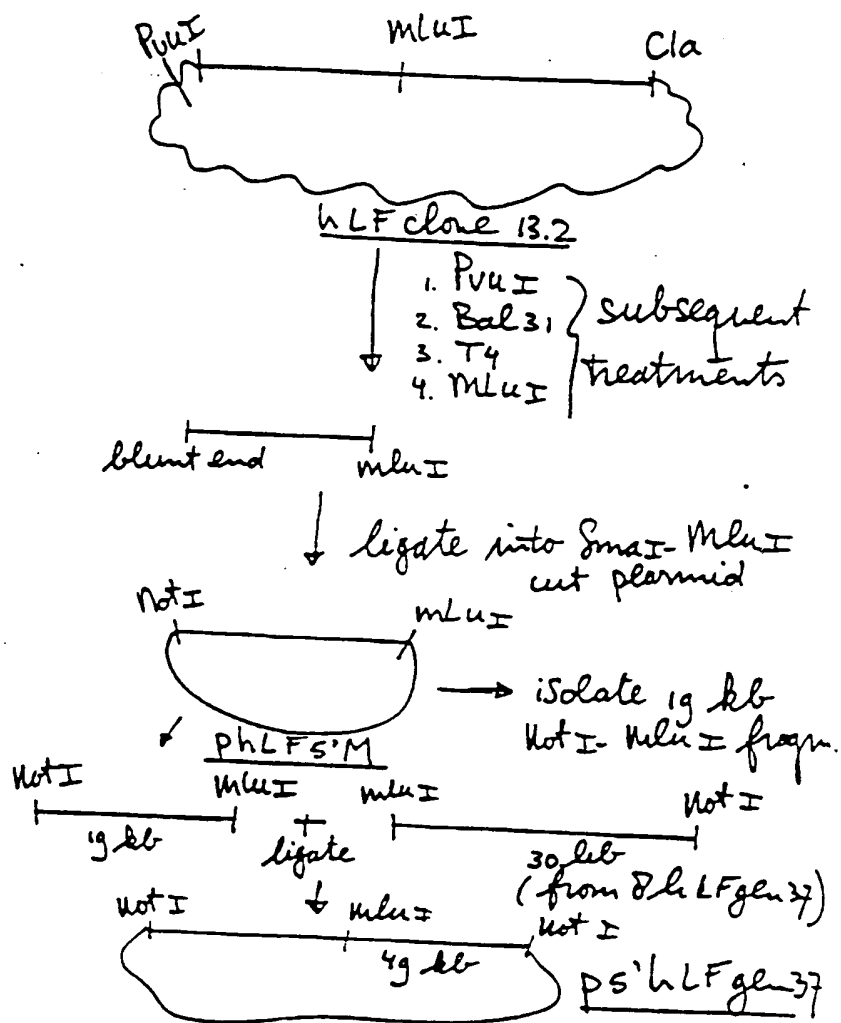 PvuI
mluI
Cla
hLF clone 13.2
1. PvuI
2. Bal31
3. T4
4. MluI
subsequent
treatments
blunt end
mluI
ligate into SmaI-MluI
cut plasmid
notI
mLuI
isolate 19 kb
NotI-MluI fragm.
phLF5'M
NotI
MluI
mluI
NotI
19 kb
+
ligate
30 kb
(from 8hLFgen37)
notI
mluI
notI
49 kb
p5'hLFgen37